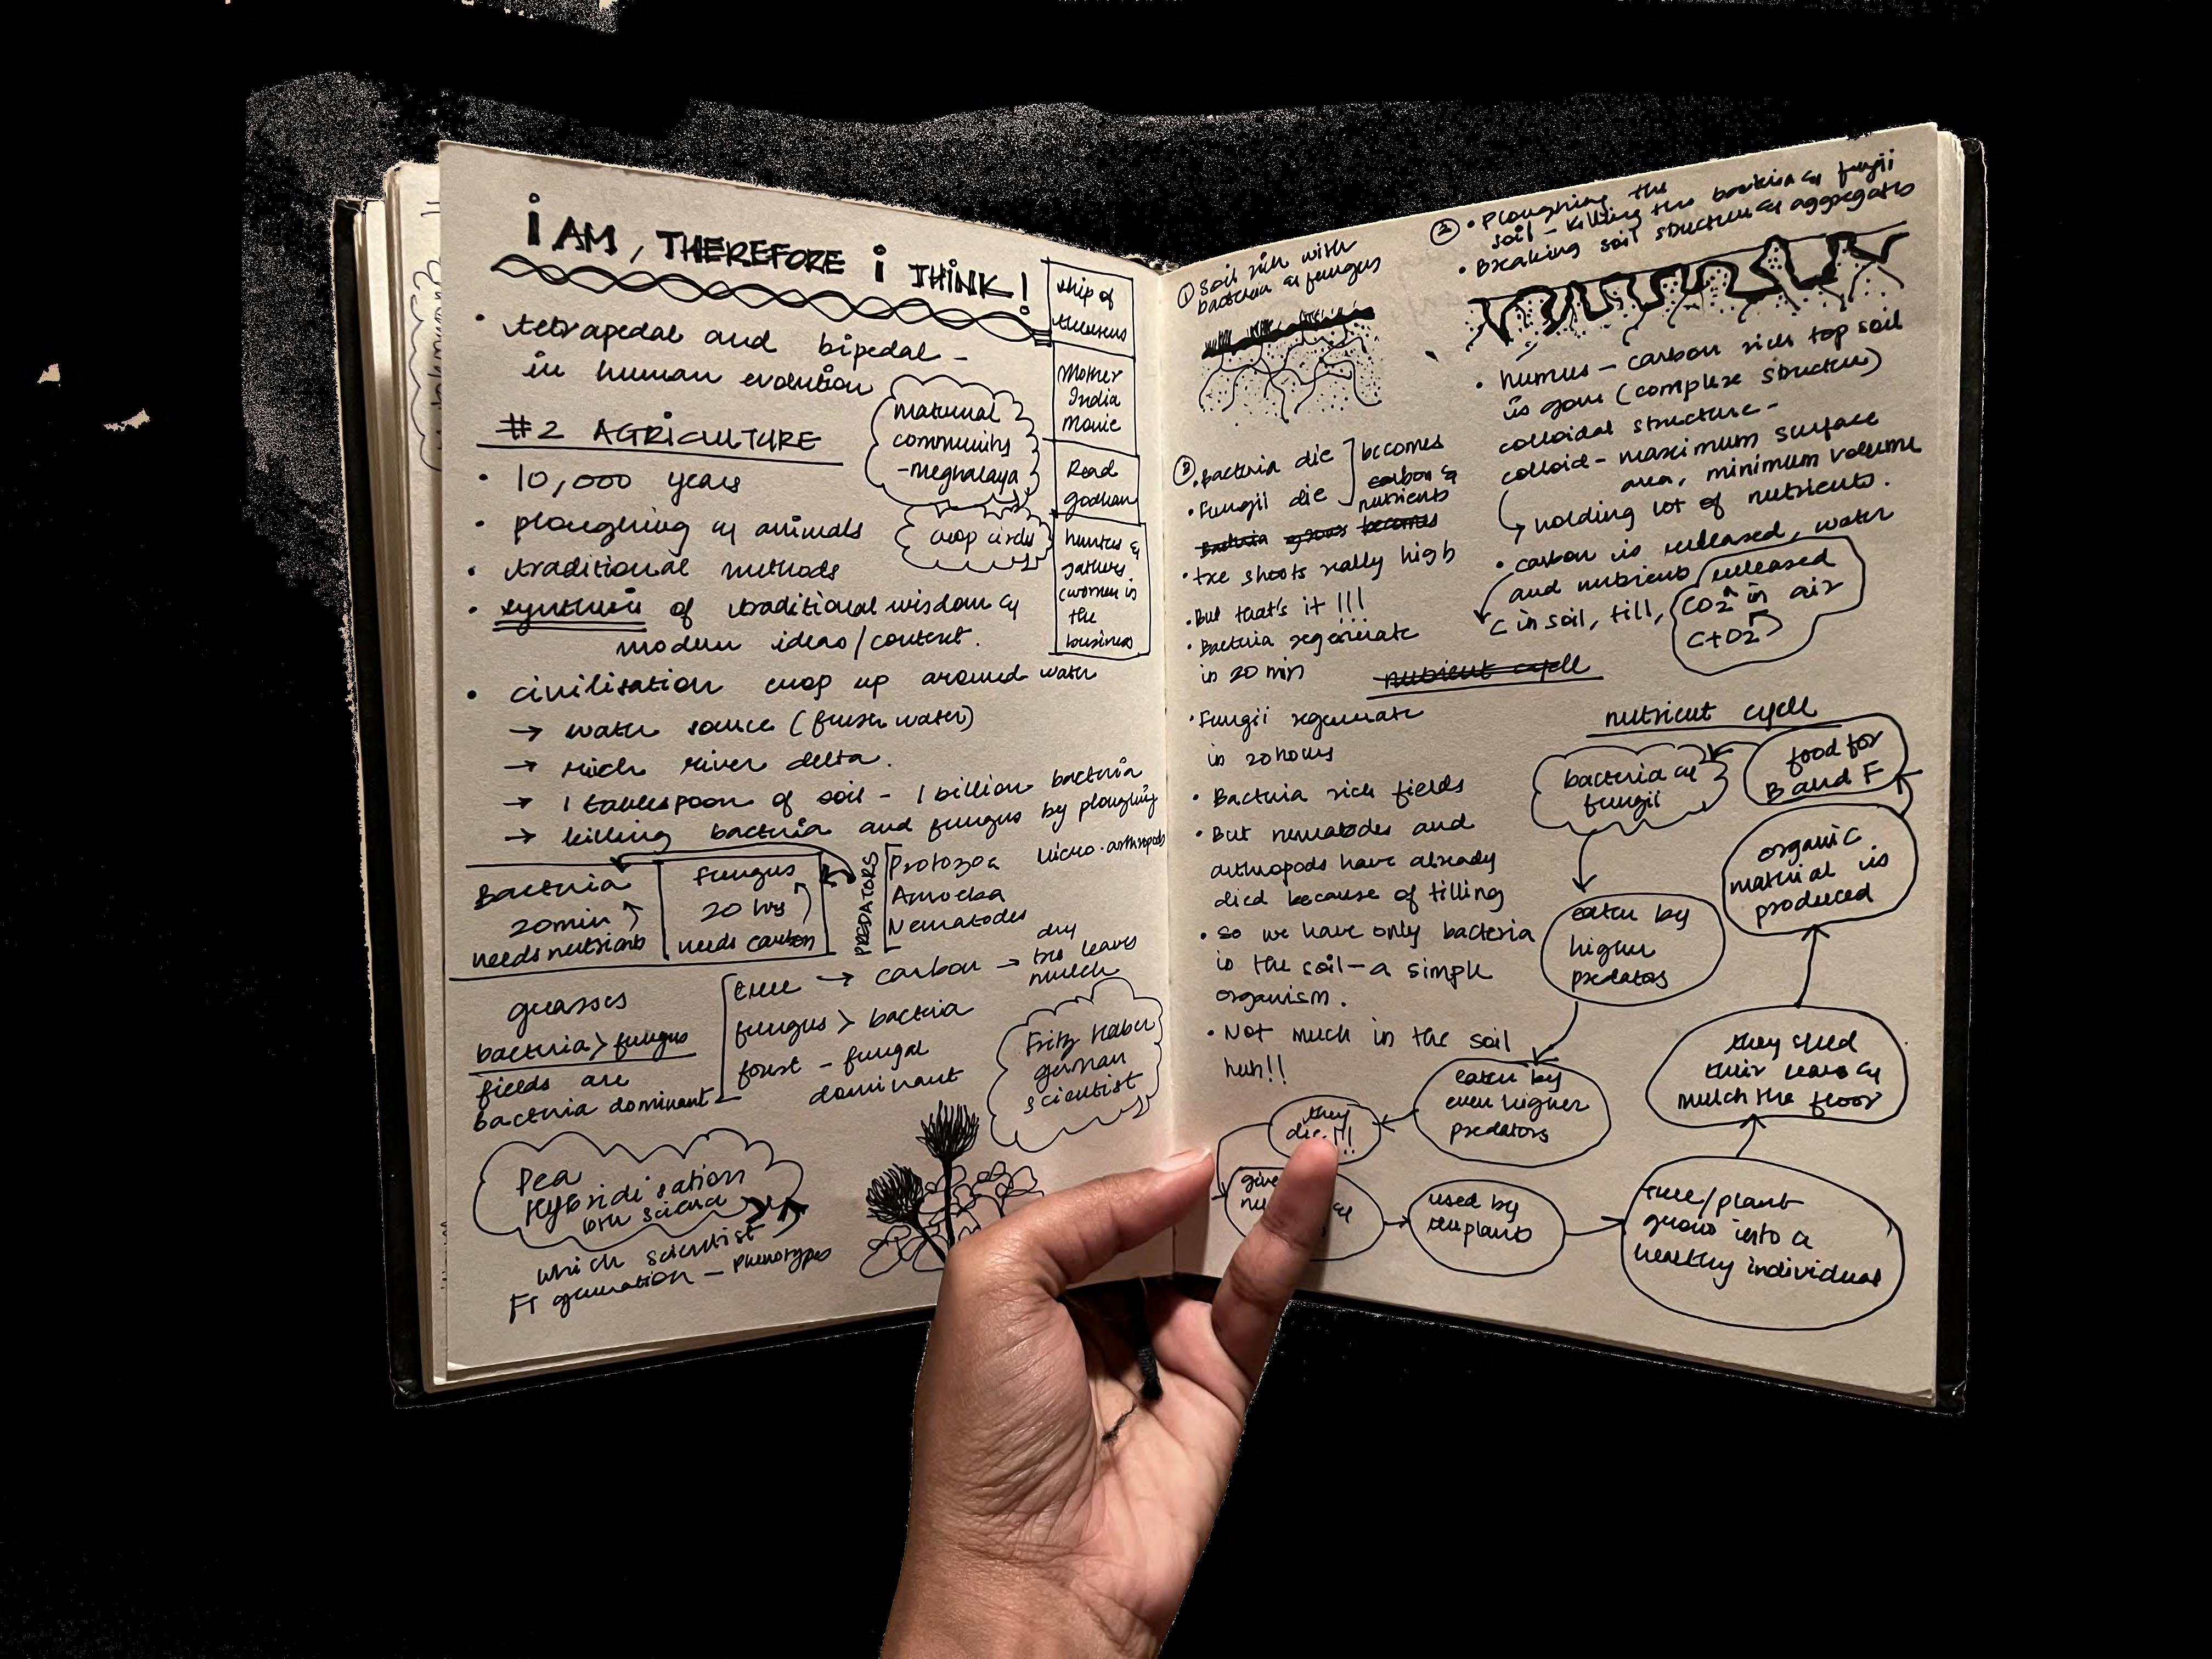 i AM, THEREFORE i THINK!
• tetrapedal and bipedal -
in human evolution
#2 AGRICULTURE
• 10,000 years
• ploughing & animals
• traditional methods
• synthesis of traditional wisdom &
modern ideas/context.
• civilisation crop up around water
→ water source (fresh water)
→ rich river delta.
→ 1 tablespoon of soil - 1 billion bacteria
→ killing bacteria and fungus by ploughing
maternal
community
-meghalaya
crop circles
ship of
theseus
Mother
India
Movie
Read
Godhan
hunters &
gathers
(women in
the
business
Bacteria
20min
needs nutrients
fungus
20 hrs
needs carbon
PREDATORS
Protozoa
Amoeba
Nematodes
Micro-arthropods
grasses
bacteria > fungus
fields are
bacteria dominant
tree → carbon → dry
tree leaves
mulch
fungus > bacteria
forest - fungal
dominant
Fritz Haber
german
scientist
Pea
Hybridisation
10th science
which scientist
F1 generation - Phenotypes
① Soil rich with
bacteria & fungus
② • Ploughing the
soil - killing the bacteria & fungii
• Breaking soil structure & aggregates
• humus - carbon rich top soil
is gone (complex structure)
colloidal structure -
colloid - maximum surface
area, minimum volume
↳ holding lot of nutrients.
• carbon is released, water
and nutrients released
C in soil, till, CO2 in air
C+O2
③ • Bacteria die
• Fungii die
becomes
carbon &
nutrients
Bacteria grows becomes
• tree shoots really high
• But that's it !!!
• Bacteria regenerate
in 20 min
nutrient cycle
• Fungii regenerate
in 20 hours
• Bacteria rich fields
• But nematodes and
arthropods have already
died because of tilling
• so we have only bacteria
in the soil - a simple
organism.
• Not much in the soil
huh!!
nutrient cycle
bacteria &
fungii
eaten by
higher
predators
eaten by
even higher
predators
they
die!!!
give
used by
the plants
tree/plant
grows into a
healthy individual
they shed
their leaves &
mulch the floor
organic
material is
produced
food for
B and F